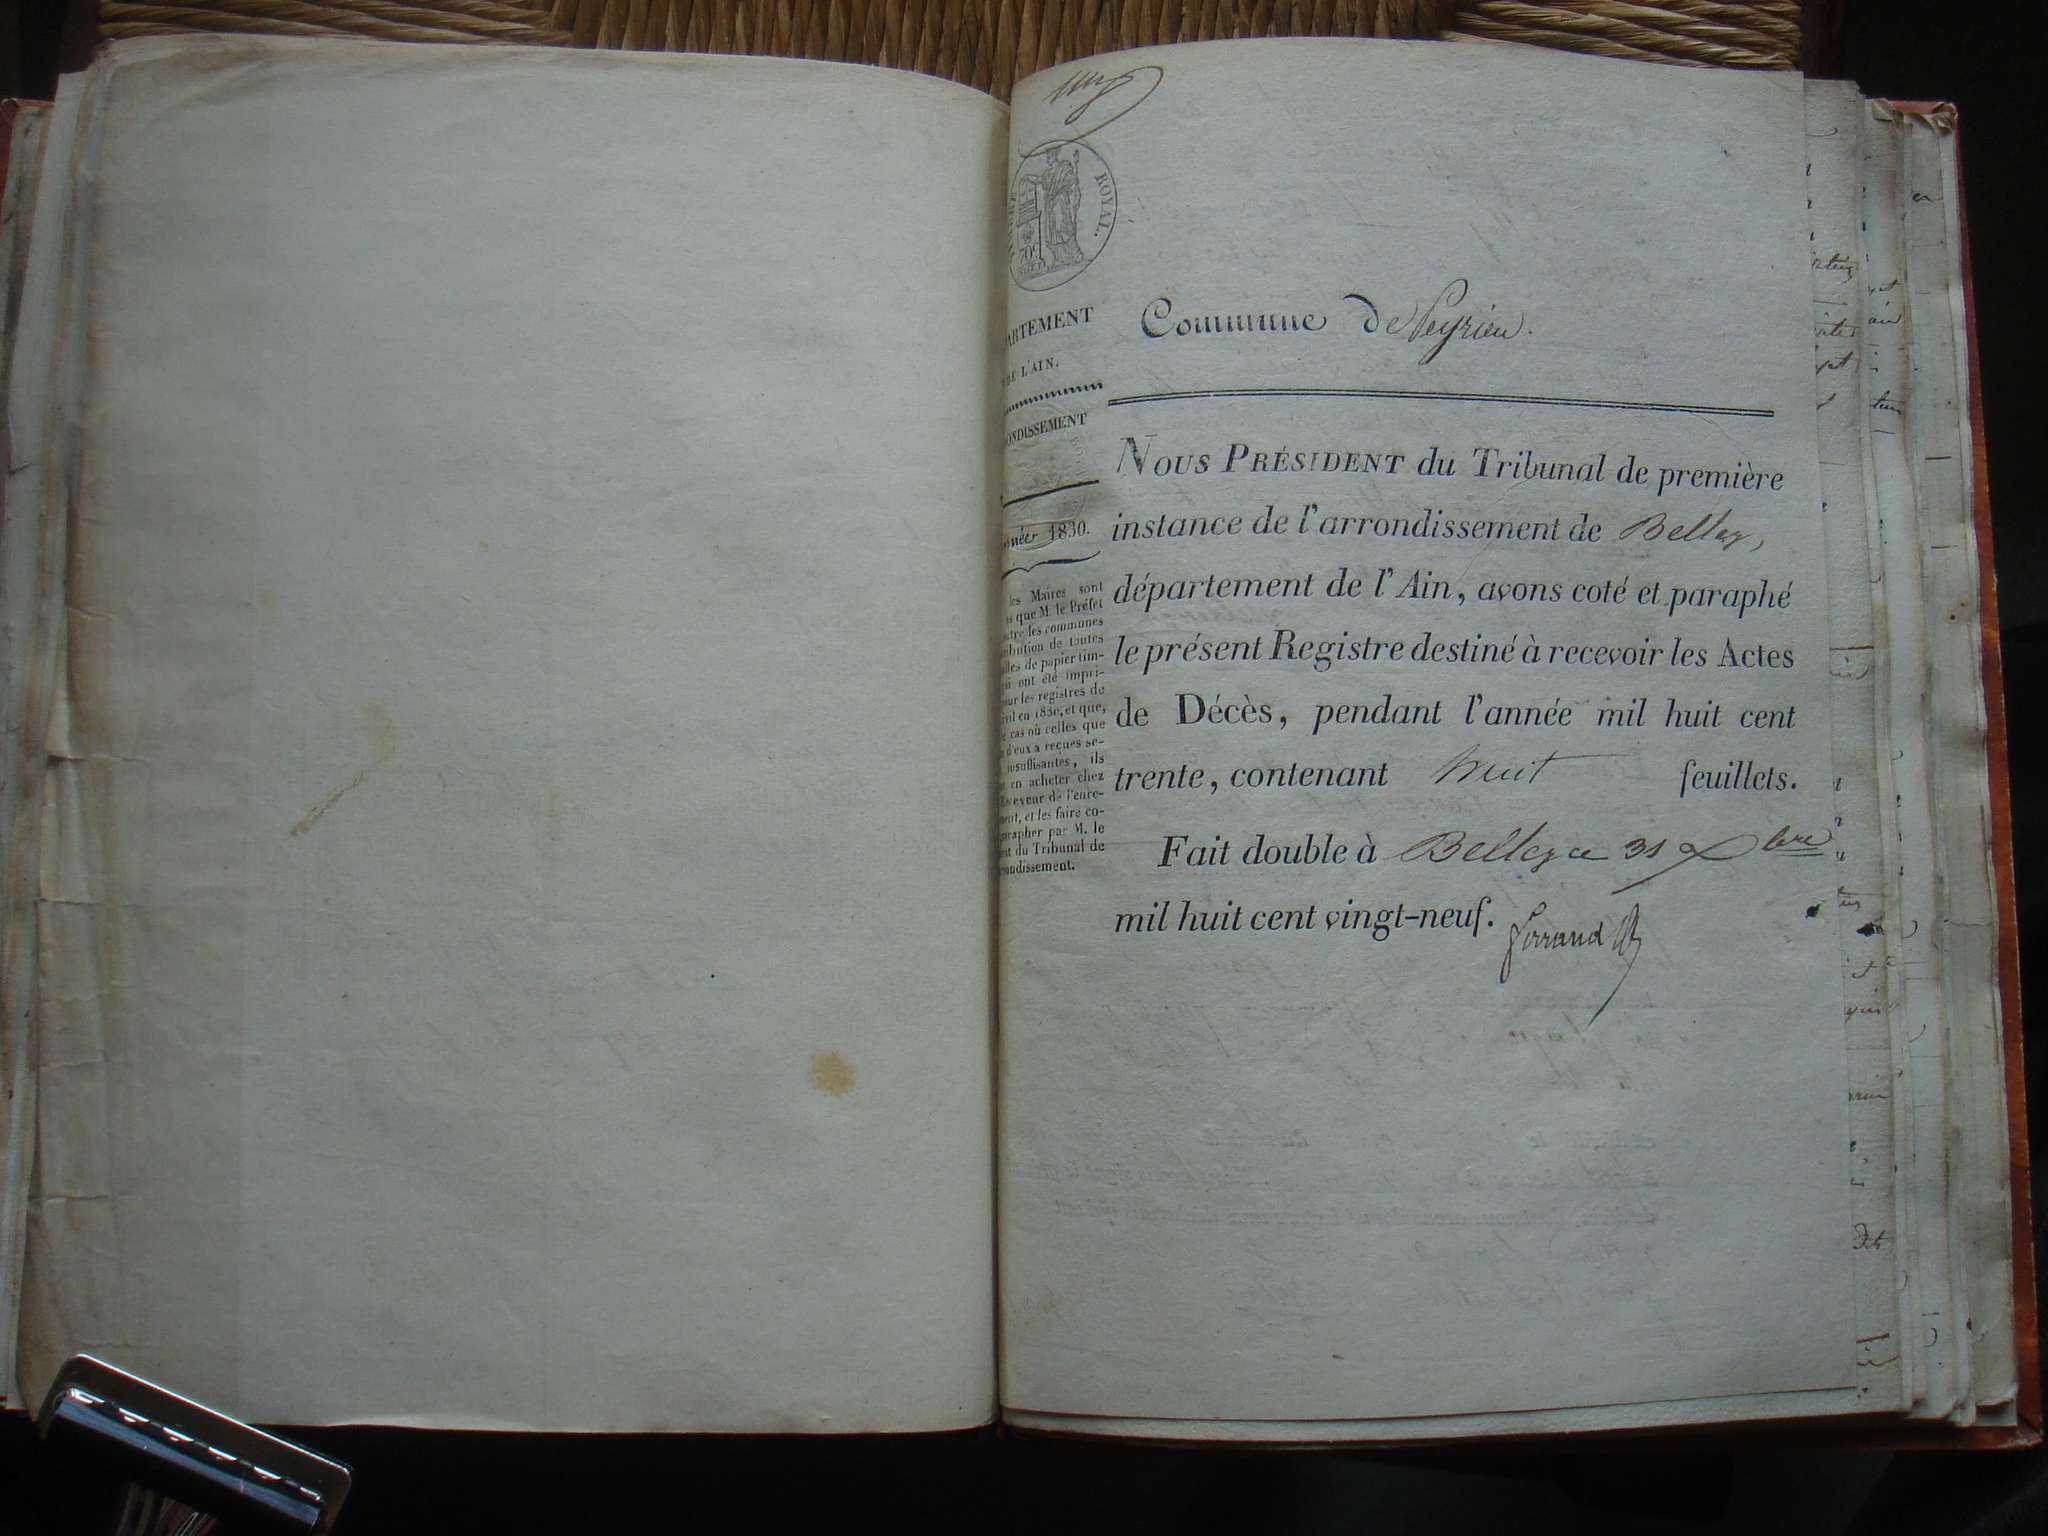 ROYAL.
70c
PARTEMENT
DE L'AIN.
ONDISSEMENT
Année 1830.
les Maires sont
que M. le Préfet
tre les communes
ibution de toutes
lles de papier tim-
ui ont été impri-
our les registres de
ivil en 1830, et que,
cas où celles que
d'eux a reçues se-
insuffisantes, ils
en acheter chez
Receveur de l'enre-
ment, et les faire co-
parapher par M. le
ent du Tribunal de
ondissement.
Commune de Peyrieu.
NOUS PRÉSIDENT du Tribunal de première
instance de l'arrondissement de Belley,
département de l'Ain, avons coté et paraphé
le présent Registre destiné à recevoir les Actes
de Décès, pendant l'année mil huit cent
trente, contenant huit feuillets.
Fait double à Belley ce 31 Xbre
mil huit cent vingt-neuf.
Ferrand